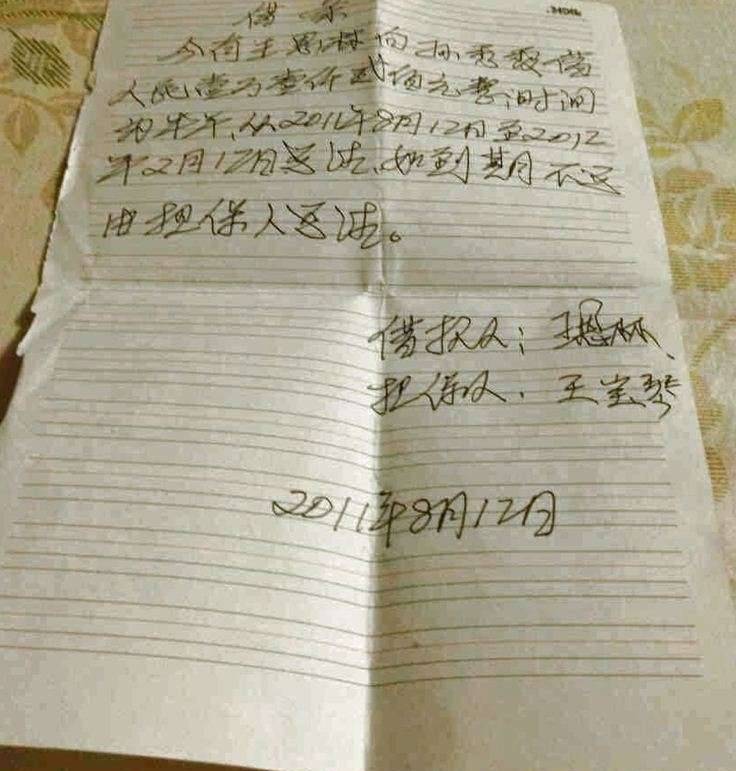 借条
今有王恩林向孙秀敏借
人民壹万壹仟贰佰元整,时间
为半年,从2011年8月12日至2012
年2月12日还清,如到期不还
由担保人还清。
借款人:王恩林
担保人:王宝琴
2011年8月12日